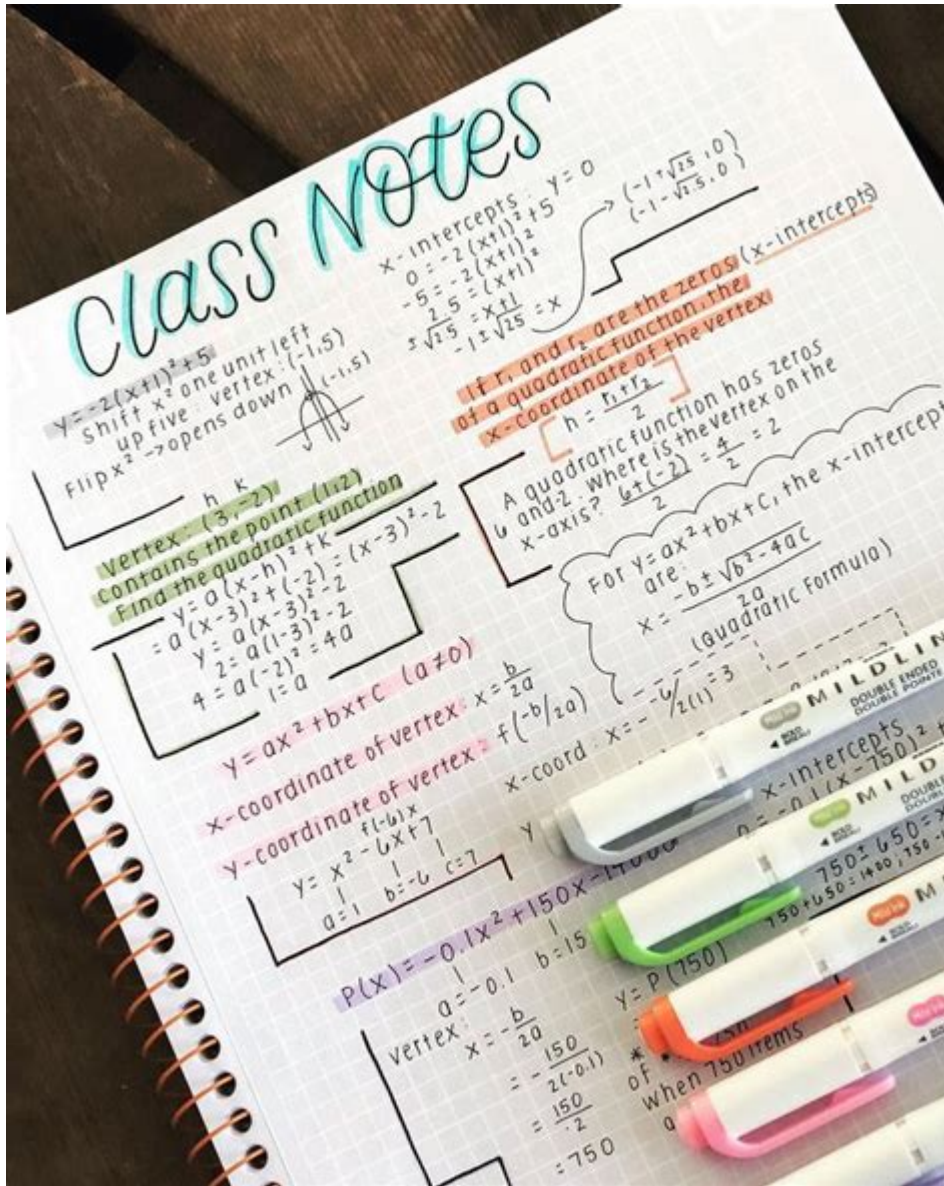 Class Notes
y = -2(x+1)² + 5
shift x² one unit left
up five : vertex : (-1,5)
Flip x² → opens down
(-1,5)
x-intercepts : y = 0
0 = -2(x+1)² + 5
-5 = -2(x+1)²
2.5 = (x+1)²
±√2.5 = x+1
-1 ± √2.5 = x
(-1+√2.5, 0)
(-1-√2.5, 0)
If r₁ and r₂ are the zeros (x-intercepts)
of a quadratic function, the
x-coordinate of the vertex
h = r₁+r₂/2
A quadratic function has zeros
6 and -2. where is the vertex on the
x-axis? 6+(-2)/2 = 4/2 = 2
h k
vertex : (3,-2)
contains the point (1,2)
Find the quadratic function
y = a(x-h)² + k
= a(x-3)² + (-2) = (x-3)² - 2
y = a(x-3)² - 2
2 = a(1-3)² - 2
4 = a(-2)² = 4a
1 = a
For y = ax² + bx + c, the x-intercept
are:
x = -b ± √b² - 4ac / 2a
(Quadratic Formula)
y = ax² + bx + c (a ≠ 0)
x-coordinate of vertex : x = b/2a
y-coordinate of vertex : f(-b/2a)
f(-6)x
y = x² - 6x + 7
a = 1 b = -6 c = 7
x-coord : x = - -6/2(1) = 3
y
P(x) = -0.1x² + 150x - 14000
a = -0.1 b = 15
vertex :
x = -b/2a
= -150/2(-0.1)
= 150/.2
= 750
x-intercepts
0 = -0.1(x-750)² +
750 ± 650 =
750+650 = 1400, 750-
y = P(750)
of
when 750 items
a
Mild ink
MILDLIN
DOUBLE ENDED
DOUBLE POINTE
BOLD
MILD
DOUBL
DOUBL
BOLD
Mild ink
M
BOLD